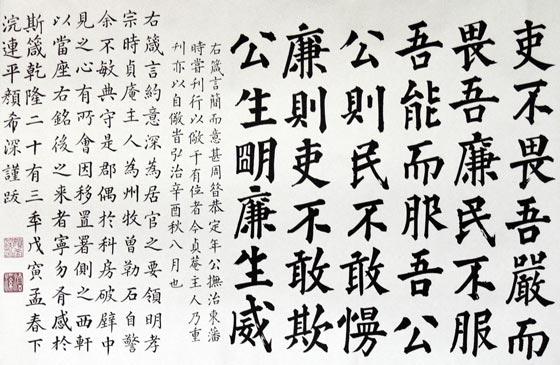 吏不畏吾嚴而
畏吾廉民不服
吾能而服吾公
公則民不敢慢
廉則吏不敢欺
公生朙廉生威
右箴言簡而意甚周昔恭定年公撫治東藩
時嘗刊行以儆于有位者今貞菴主人乃重
刊亦以自儆旹弘治辛酉秋八月也
右箴言約意深為居官之要領明孝
宗時貞庵主人為州牧曾勒石自警
余不敏典守是郡偶於科房破壁中
見之心有所會因移置署側之西軒
以當座右銘後之来者寧勿有感於
斯箴乾隆二十有三年戊寅孟春下
浣連平顏希深謹跋